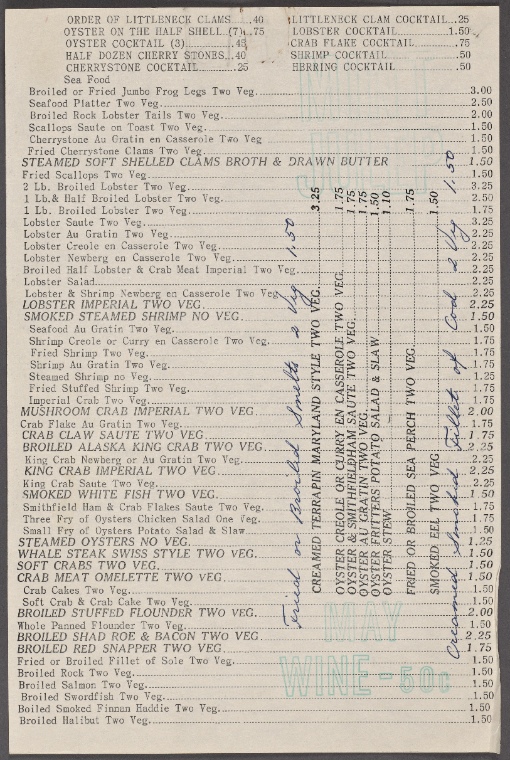 ORDER OF LITTLENECK CLAMS....40
OYSTER ON THE HALF SHELL (7).75
OYSTER COCKTAIL (3)....45
HALF DOZEN CHERRY STONES..40
CHERRYSTONE COCKTAIL....25
LITTLENECK CLAM COCKTAIL..25
LOBSTER COCKTAIL....1.50
CRAB FLAKE COCKTAIL....75
SHRIMP COCKTAIL....50
HERRING COCKTAIL....50
Sea Food
Broiled or Fried Jumbo Frog Legs Two Veg....3.00
Seafood Platter Two Veg....2.50
Broiled Rock Lobster Tails Two Veg....2.00
Scallops Saute on Toast Two Veg....1.50
Cherrystone Au Gratin en Casserole Two Veg....1.50
Fried Cherrystone Clams Two Veg....1.50
STEAMED SOFT SHELLED CLAMS BROTH & DRAWN BUTTER....1.50
Fried Scallops Two Veg....1.50
2 Lb. Broiled Lobster Two Veg....3.25
1 Lb.& Half Broiled Lobster Two Veg....2.50
1 Lb. Broiled Lobster Two Veg....1.75
Lobster Saute Two Veg....2.25
Lobster Au Gratin Two Veg....2.25
Lobster Creole en Casserole Two Veg....2.25
Lobster Newberg en Casserole Two Veg....2.25
Broiled Half Lobster & Crab Meat Imperial Two Veg....2.25
Lobster Salad....2.25
Lobster & Shrimp Newberg en Casserole Two Veg....2.25
LOBSTER IMPERIAL TWO VEG....2.25
SMOKED STEAMED SHRIMP NO VEG....1.50
Seafood Au Gratin Two Veg....1.50
Shrimp Creole or Curry en Casserole Two Veg....1.75
Fried Shrimp Two Veg....1.75
Shrimp Au Gratin Two Veg....1.75
Steamed Shrimp no Veg....1.25
Fried Stuffed Shrimp Two Veg....1.75
Imperial Crab Two Veg....1.75
MUSHROOM CRAB IMPERIAL TWO VEG....2.00
Crab Flake Au Gratin Two Veg....1.75
CRAB CLAW SAUTE TWO VEG....1.75
BROILED ALASKA KING CRAB TWO VEG....2.25
King Crab Newberg or Au Gratin Two Veg....2.25
KING CRAB IMPERIAL TWO VEG....2.25
King Crab Saute Two Veg....2.25
SMOKED WHITE FISH TWO VEG....1.50
Smithfield Ham & Crab Flakes Saute Two Veg....1.75
Three Fry of Oysters Chicken Salad One Veg....1.75
Small Fry of Oysters Potato Salad & Slaw....1.50
STEAMED OYSTERS NO VEG....1.25
WHALE STEAK SWISS STYLE TWO VEG....1.50
SOFT CRABS TWO VEG....1.50
CRAB MEAT OMELETTE TWO VEG....1.50
Crab Cakes Two Veg....1.50
Soft Crab & Crab Cake Two Veg....1.50
BROILED STUFFED FLOUNDER TWO VEG....2.00
Whole Panned Flounder Two Veg....1.50
BROILED SHAD ROE & BACON TWO VEG....2.25
BROILED RED SNAPPER TWO VEG....1.75
Fried or Broiled Fillet of Sole Two Veg....1.50
Broiled Rock Two Veg....1.50
Broiled Salmon Two Veg....1.50
Broiled Swordfish Two Veg....1.50
Boiled Smoked Finnan Haddie Two Veg....1.50
Broiled Halibut Two Veg....1.50
Fried or Broiled Smelts 2 Veg 1.50
CREAMED TERRAPIN MARYLAND STYLE TWO VEG....3.25
OYSTER CREOLE OR CURRY EN CASSEROLE TWO VEG....1.75
OYSTER & SMITHFIELDHAM SAUTE TWO VEG....1.75
OYSTER AU GRATIN TWO VEG....1.75
OYSTER FRITTERS POTATO SALAD & SLAW....1.50
OYSTER STEW....1.10
FRIED OR BROILED SEA PERCH TWO VEG....1.75
SMOKED EEL TWO VEG....1.50
Creamed Smoked Fillet of Cod 2 Veg 1.50
MAY
WINE - 60c